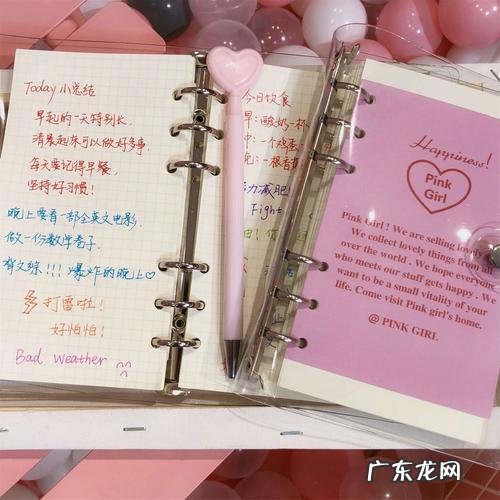 Today 小总结
早起的一天特别长,
清晨起床可以做好多事,
每天要记得早餐,
坚持好习惯!
晚上要看一部全英文电影,
做一份数学卷子,
有文综!!! 爆炸的晚上♡
打雷啦!
好怕怕!
Bad weather
今日饮食
早:酸奶一杯
中:一个鸡蛋
晚:一根香
力减肥
Fight
Happiness!
Pink
Girl
Pink Girl ! We are selling lovely
We collect lovely things from all
over the world . We hope everyone
who meets our stuff gets happy . We
want to be a small vitality of your
life. Come visit Pink girl's home.
@ PINK GIRL
广东龙网